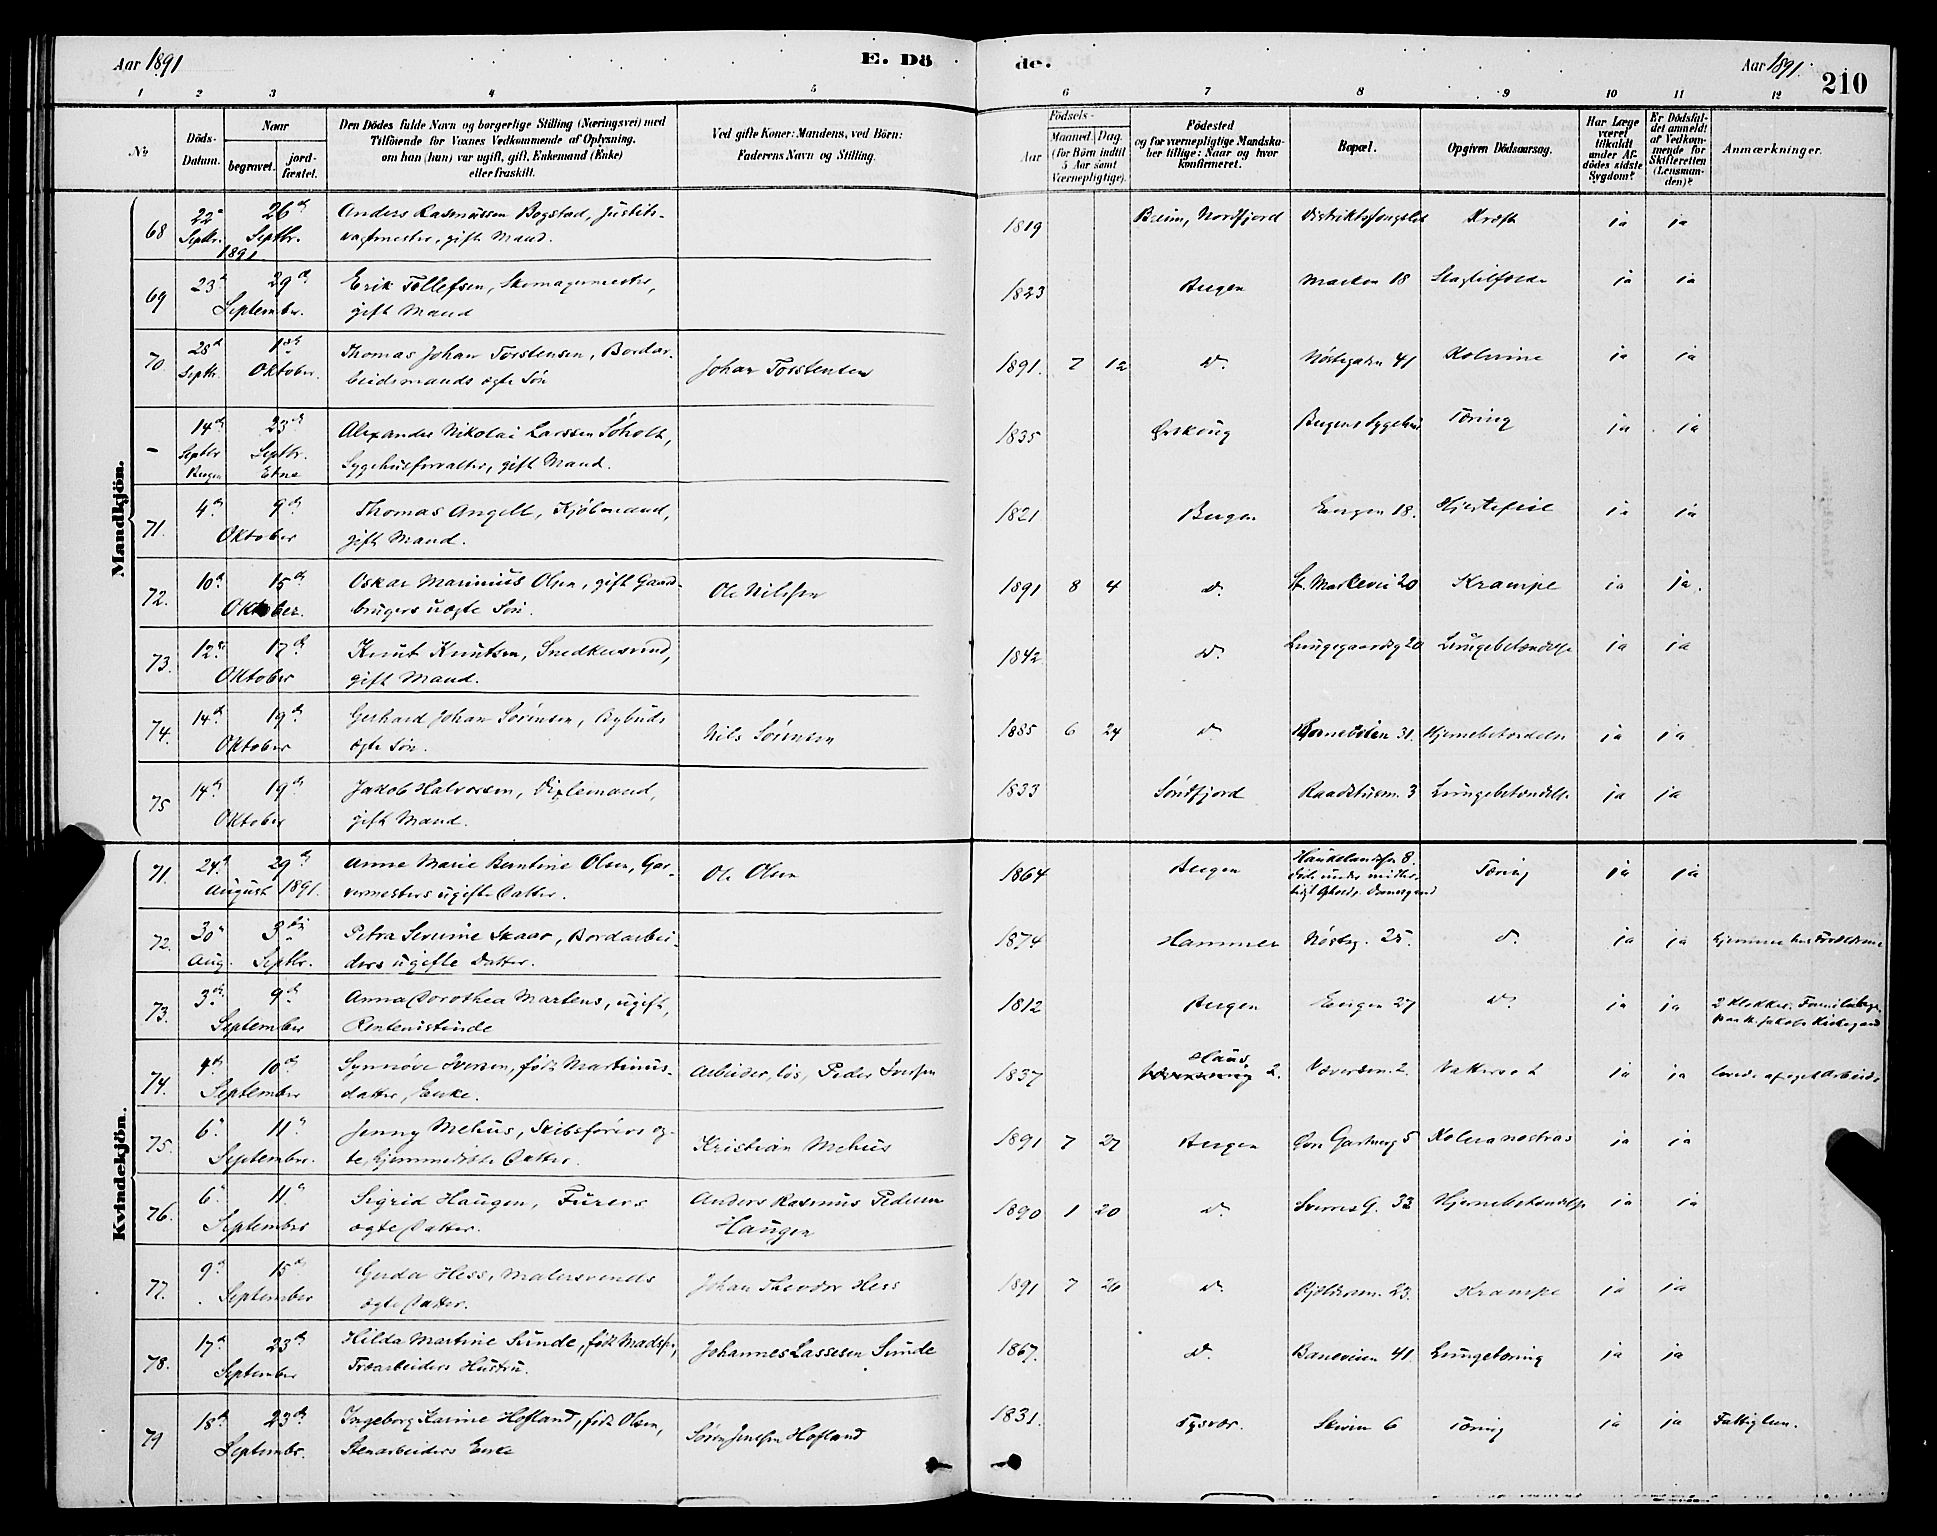 Aar 1891
E. Dö
de.
Aar 1891.
210
1 2 3 4 5 6 7 8 9 10 11 12
No
Döds-
Datum.
Naar
begravet.
jord-
fæstet.
Den Dödes fulde Navn og borgerlige Stilling (Næringsvei) med
Tilföiende for Voxnes Vedkommende af Oplysning,
om han (hun) var ugift, gift, Enkemand (Enke)
eller fraskilt.
Ved gifte Koner: Mandens, ved Börn:
Faderens Navn og Stilling.
Födsels-
Aar
Maaned. Dag.
(for Börn indtil
5 Aar samt
Værnepligtige).
Födested
og for værnepligtige Mandska-
ber tillige: Naar og hvor
konfirmeret.
Bopæl.
Opgiven Dödsaarsag.
Har Læge
været
tilkaldt
under Af-
dödes sidste
Sygdom?
Er Dödsfal-
det anmeldt
af Vedkom-
mende for
Skifteretten
(Lensman-
den)?
Anmærkninger.
Mandkjön.
68 22 Septbr. 26de Septbr. 1891 Anders Rasmussen Bogstad, Justits-
vagtmester, gift Mand. 1819 Breim, Nordfjord Distriktsfængslet Kræft ja ja
69 23 29de September. Erik Tollefsen, Skomagermester,
gift Mand 1823 Bergen Marken 18 Slagtilfælde ja ja
70 28de Septbr. 1ste Oktober. Thomas Johan Torstensen, Bordar-
beidsmands ægte Søn Johan Torstensen 1891. 7 12 do. Nøstegaden 41 Kolerine ja ja
- 14de Septbr Bergen 23de Septbr. Etne Alexander Nikolai Larssen Søholt,
Sygehusforvalter, gift Mand. 1835 Ørskoug Bergens Sygehus Tæring ja ja
71. 4de 9de Oktober Thomas Angell, Kjøbmand,
gift Mand. 1821 Bergen Engen 18. Hjertefeil ja ja
72. 10de 15de Oktober. Oskar Marinius Olsen, gift Gaard-
brugers uægte Søn. Ole Nilssen 1891 8 4 do. St. Markevei 20 Krampe ja ja.
73. 12te 17de Oktober Knut Knutsen, Snedkersvend,
gift Mand. 1842 do. Lungegaardsg 20 Lungebetændelse ja ja
74. 14de 19de Oktober Gerhard Johan Sørensen, Bybuds
ægte Søn. Nils Sørensen 1885 6 24 do. 31. Hjernebetændelse ja ja
75 14de 19de Oktober Jakob Halvorsen, Dixlemand,
gift Mand. 1833 Søndfjord Raadstusm. 3 Lungebetændelse ja ja
Kvindekjön.
71. 24de 29de August 1891. Anne Marie Berntine Olsen, Gar-
vermesters ugifte Datter. Ole Olsen 1864 Bergen Haukelandsfr. 8. Tæring ja ja
72. 30 Aug. 3die Septbr. Petra Severine Skaar, Bordarbei-
ders ugifte Datter. 1874 Hammer Nøsteg. 25. do. ja ja hjemme hos Forældrene
73. 3die 9de September Anna Dorothea Martens, ugift,
Rentenistinde 1812 Bergen Engen 27 do. ja ja 2 Klokker. Familiebegr.
paa St. Jakobs Kirkegaard
74. 4de 10de September Synnøve Iversen, født Martinus-
datter, Enke. Arbeider, løs, Peder Iversen 1837 Haus 2. Væversm. 2. Vattersot ja ja levede af eget Arbeide
75. 6te 11te September. Jenny Mehus, Skibsførers æg-
te, hjemmedøbte Datter. Kristian Mehus 1891 7 27 Bergen Øvre Gartnerg 5 Kolera nostras ja ja
76. 6te 11te September Sigrid Haugen, Furers
ægte Datter. Anders Rasmus Pedersen
Haugen 1890 1 20 do. Sverres G. 33 Hjernebetændelse ja ja
77. 9de 15de September Gerda Hess, Malersvends
ægte Datter. Johan Theodor Hess 1891 7 26 do. 23. Krampe ja ja
78. 17de 23de September Hilda Martine Sunde, født Madssen,
Træarbeiders Hustru. Johannes Lassesen Sunde 1867. do. Baneveien 41. Lungetæring ja ja
79 18de 23de September. Ingeborg Karine Hofland, født Olsen,
Stenarbeiders Enke Søren Jenssen Hofland 1831. Tysvær. Skiven 6 Tæring ja ja Fattiglem.